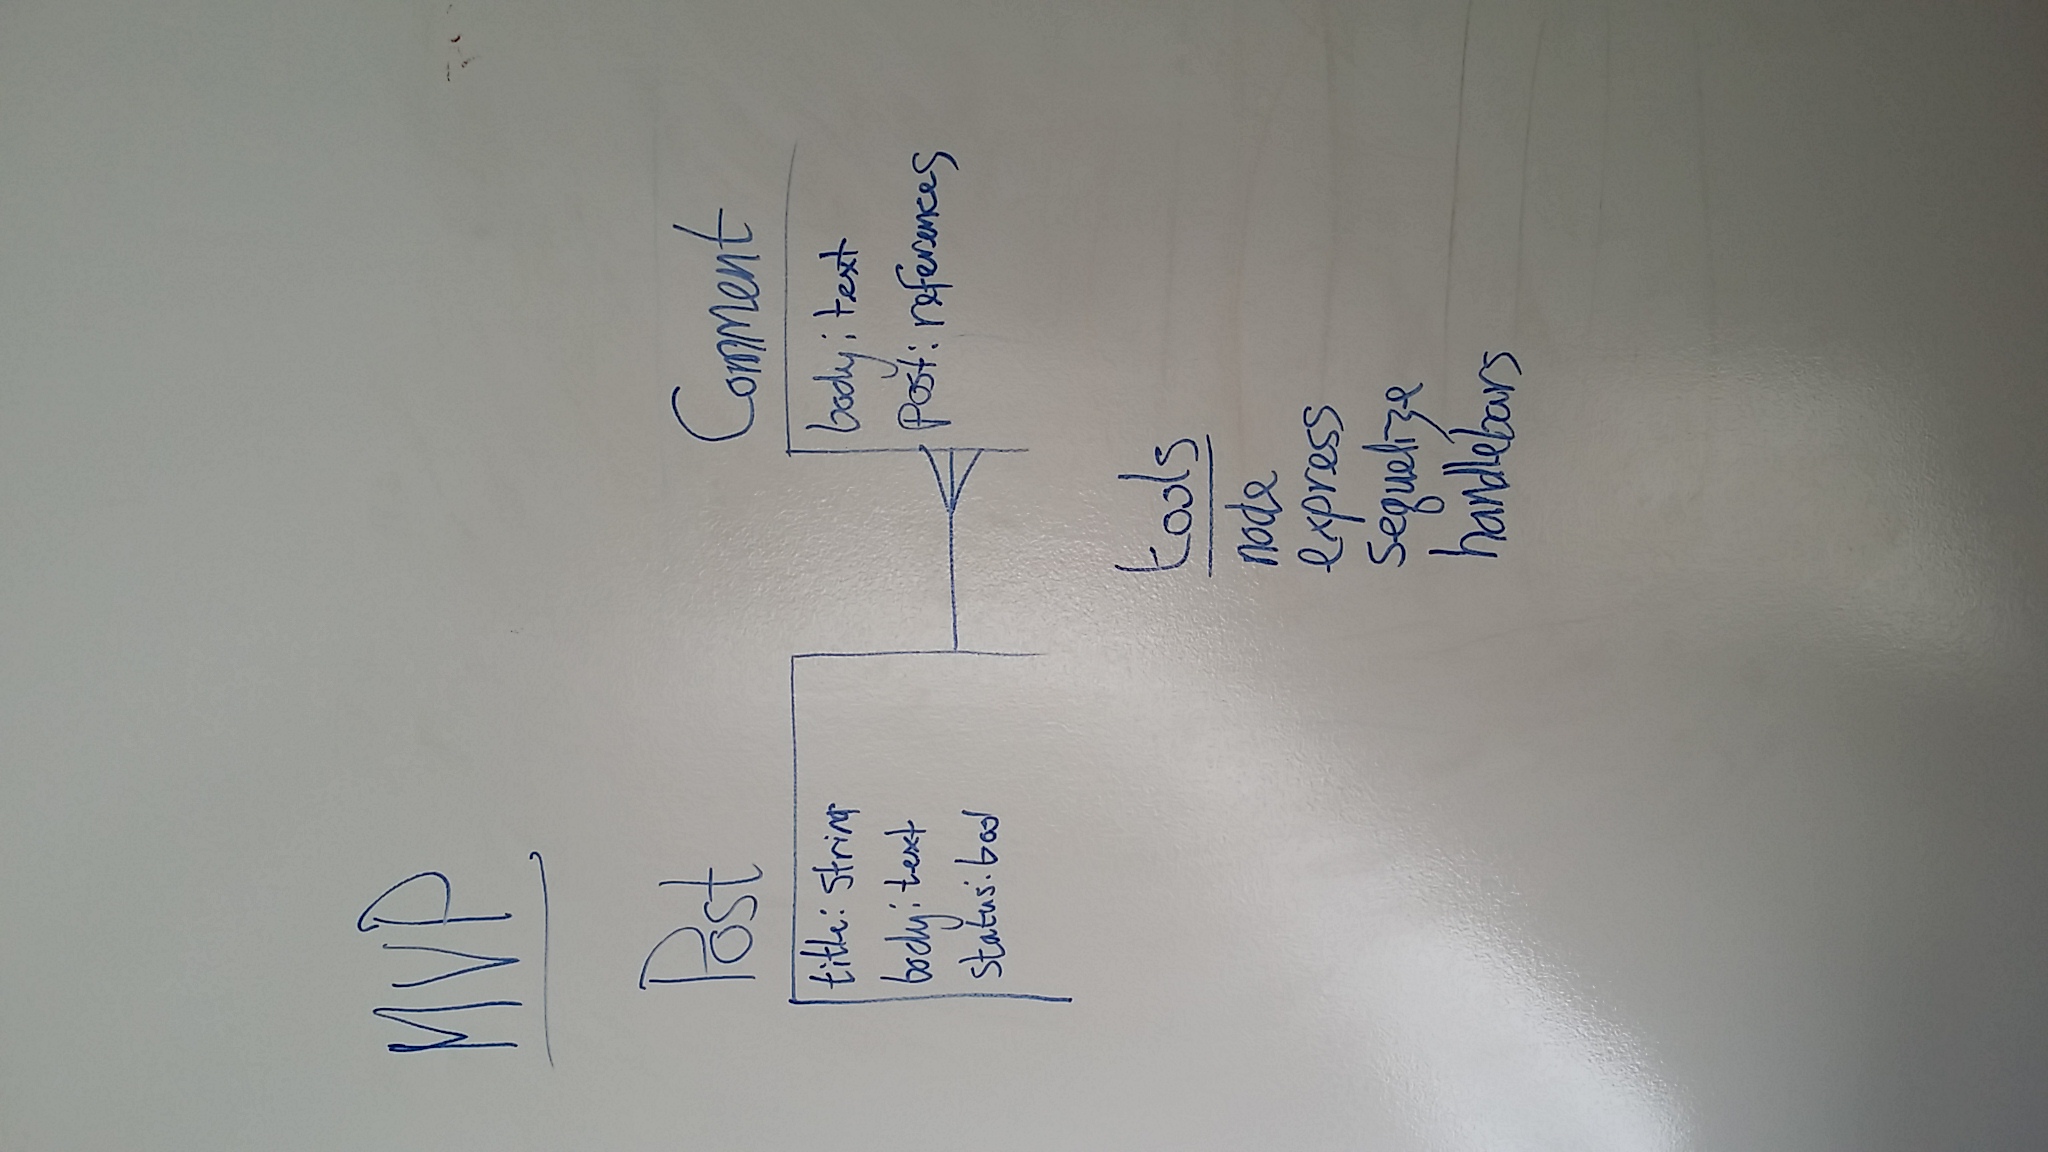 MVP
Post
title: string
body: text
status: bool
Comment
body: text
post: references
tools
node
express
sequelize
handlebars